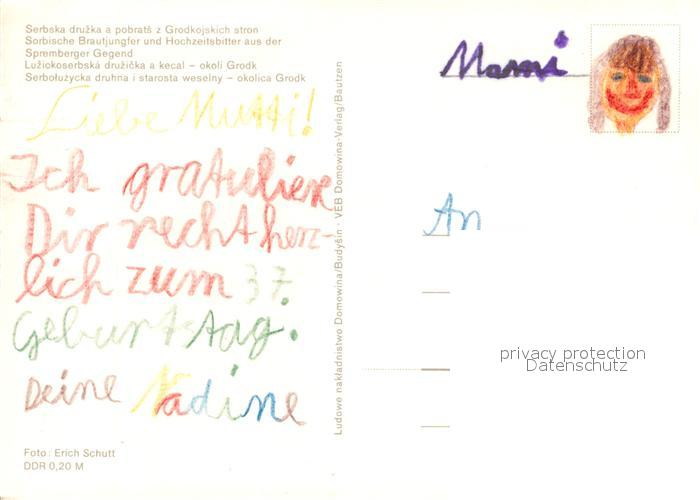 Serbska družka a pobratš z Grodkojskich stron
Sorbische Brautjungfer und Hochzeitsbitter aus der
Spremberger Gegend
Lužickoserbská družička a kecal – okolí Grodk
Serbołużycka druhna i starosta weselny – okolica Grodk
Liebe Mutti!
Ich gratuliere
Dir recht herz-
lich zum 37.
Geburtstag.
Deine Nadine
Foto: Erich Schutt
DDR 0,20 M
Ludowe nakładnistwo Domowina/Budyšin · VEB Domowina-Verlag/Bautzen
Mami
An
privacy protection
Datenschutz